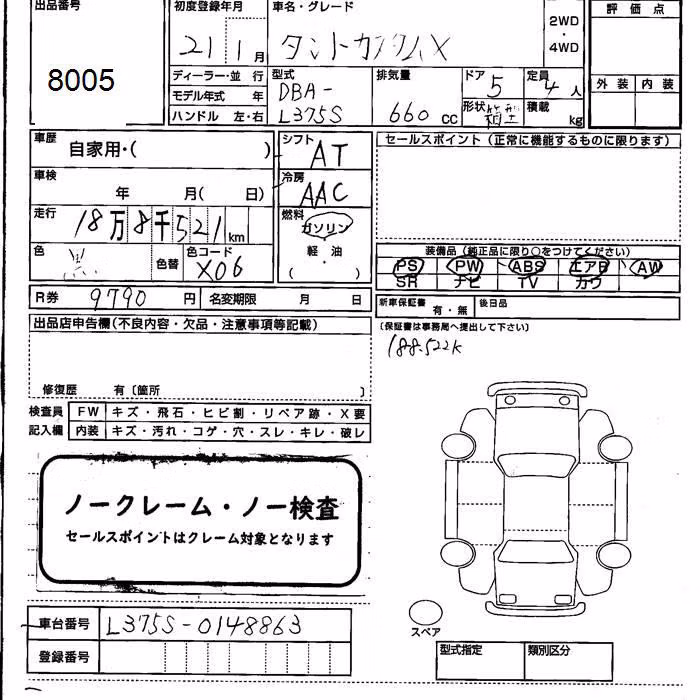 出品番号
8005
初度登録年月
21年1月
車名・グレード
タントカスタムX
2WD
・
4WD
評価点
外装 内装
ディーラー・並 行
モデル年式 年
ハンドル 左・右
型式
DBA-
L375S
排気量
660 cc
ドア 5
形状 箱型
定員 4 人
積載 kg
車歴 自家用・( )
車検 年 月( 日)
走行 18万8千521km
色 黒 色替 色コード X06
シフト AT
冷房 AAC
燃料
ガソリン
軽油
・
( )
セールスポイント(正常に機能するものに限ります)
装備品(純正品に限り○をつけてください)
PS PW ABS エアB AW
SR ナビ TV カワ
R券 9790 円 名変期限 月 日
新車保証書 有・無 後日品
(保証書は事務局へ提出して下さい)
188.522K
出品店申告欄(不良内容・欠品・注意事項等記載)
修復歴 有〔箇所 〕
検査員 FW キズ・飛石・ヒビ割・リペア跡・X要
記入欄 内装 キズ・汚れ・コゲ・穴・スレ・キレ・破レ
ノークレーム・ノー検査
セールスポイントはクレーム対象となります
車台番号 L375S-0148863
登録番号
スペア
型式指定 類別区分